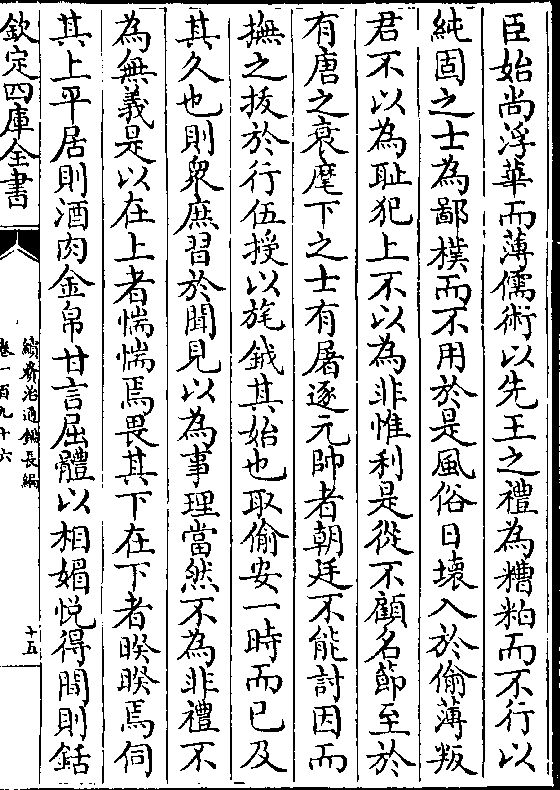 臣始尚浮華而薄儒術以先王之禮為糟粕而不行以
純固之士為鄙樸而不用於是風俗日壊入於偷薄叛
君不以為恥犯上不以為非惟利是從不顧名節至於
有唐之衰麾下之士有屠逐元帥者朝廷不能討因而
撫之拔於行伍授以旄鉞其始也取偷安一時而已及
其久也則衆庶習於聞見以為事理當然不為非禮不
為無義是以在上者惴惴焉畏其下在下者睽睽焉伺
其上平居則酒肉金帛甘言屈體以相媚悦得間則銛
欽定四庫全書
續資治通鑑長編
卷一百九十六
十五